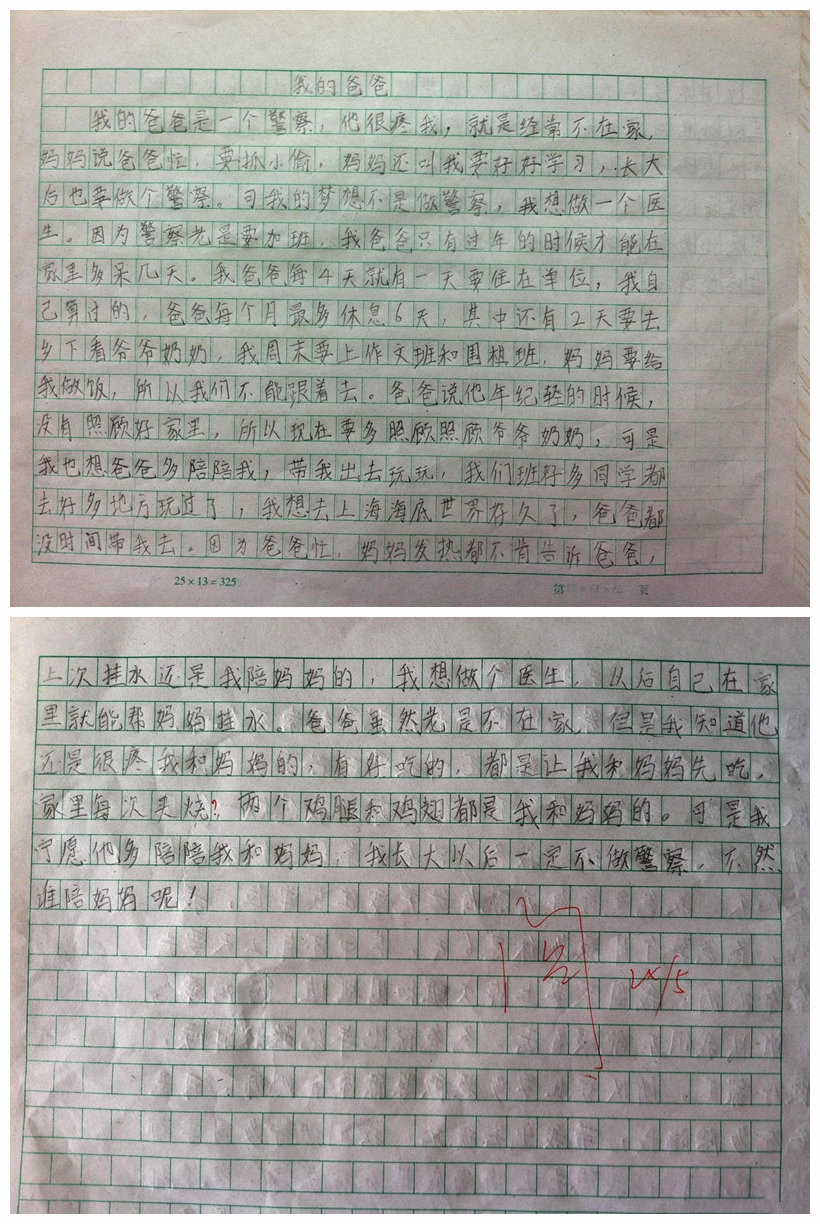 我的爸爸
我的爸爸是一个警察，他很疼我，就是经常不在家，
妈妈说爸爸忙，要抓小偷，妈妈还叫我要好好学习，长大
后也要做个警察。可我的梦想不是做警察，我想做一个医
生。因为警察老是要加班，我爸爸只有过年的时候才能在
家里多呆几天。我爸爸每4天就有一天要住在单位，我自
己算过的，爸爸每个月最多休息6天，其中还有2天要去
乡下看爷爷奶奶，我周末要上作文班和围棋班，妈妈要给
我做饭，所以我们不能跟着去。爸爸说他年纪轻的时候，
没有照顾好家里，所以现在要多照顾照顾爷爷奶奶，可是
我也想爸爸多陪陪我，带我出去玩玩，我们班好多同学都
去好多地方玩过了，我想去上海海底世界好久了，爸爸都
没时间带我去。因为爸爸忙，妈妈发热都不肯告诉爸爸，
25×13=325
第 页
上次挂水还是我陪妈妈的，我想做个医生，以后自己在家
里就能帮妈妈挂水。爸爸虽然老是不在家，但是我知道他
还是很疼我和妈妈的，有好吃的，都是让我和妈妈先吃，
家里每次买烧？两个鸡腿和鸡翅都是我和妈妈的。可是我
宁愿他多陪陪我和妈妈，我长大以后一定不做警察，不然
谁陪妈妈呢！
阅